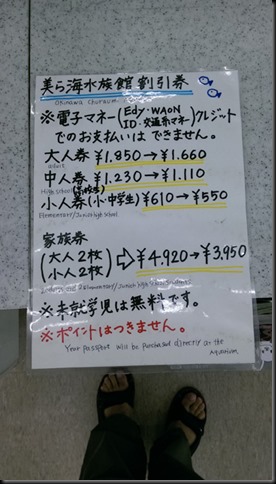 美ら海水族館割引券
Okinawa Churaumi
※電子マネー(Edy・WAON
ID・交通系マネー)クレジット
でのお支払いは できません。
大人券 ¥1.850→¥1.660
adult
中人券 ¥1.230→¥1.110
High school(高校生)
小人券(小・中学生)¥610→¥550
Elementary/Junior high School
家族券
(大人2枚
小人2枚)⇨¥4.920→¥3.950
Elementary/Junior high School Students
※未就学児は無料です。
※ポイントはつきません。
Your passport will be purchased directly at the
Aquarium